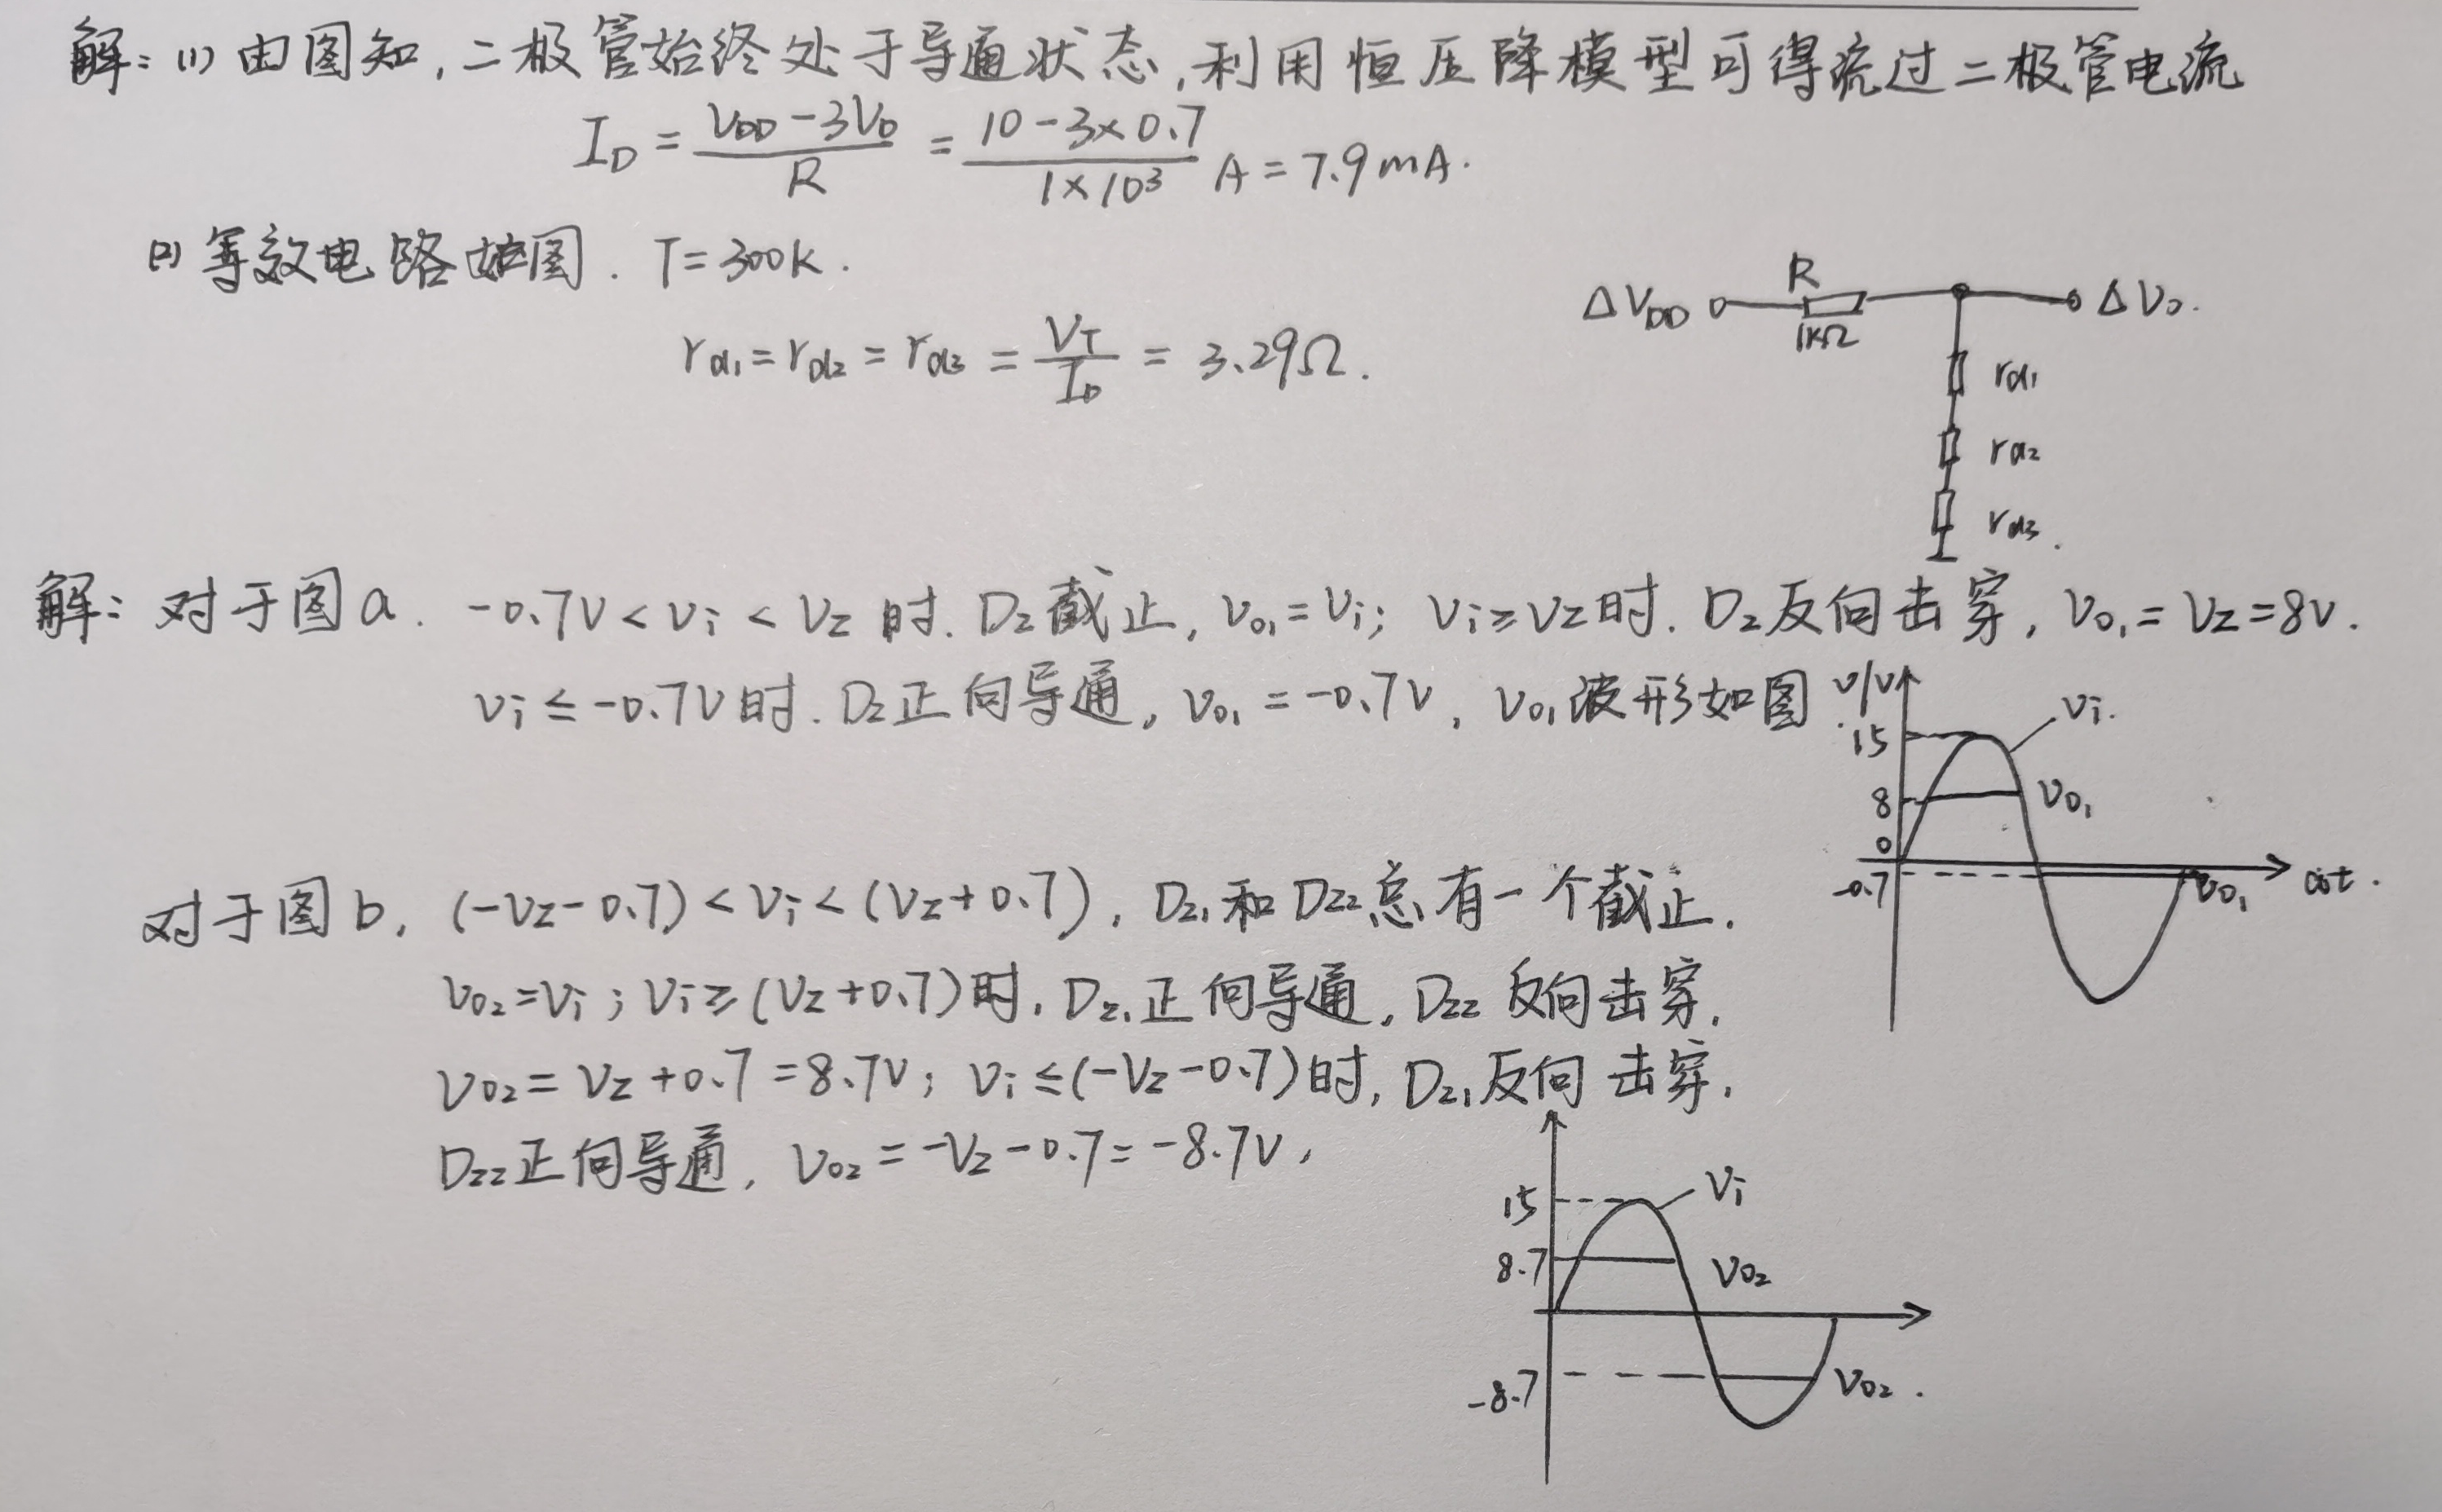 解：(1) 由图知，二极管始终处于导通状态，利用恒压降模型可得流过二极管电流
I_D = (V_DD - 3V_D) / R = (10 - 3×0.7) / (1×10³) A = 7.9 mA.
(2) 等效电路如图. T=300K.
r_d1 = r_d2 = r_d3 = V_T / I_D = 3.29Ω.
ΔV_DD R 1kΩ ΔV_o.
r_d1
r_d2
r_d3.
解：对于图a. -0.7V < v_i < V_Z 时. D_Z截止, v_o1 = v_i; v_i ≥ V_Z 时. D_Z反向击穿, v_o1 = V_Z = 8V.
v_i ≤ -0.7V 时. D_Z正向导通, v_o1 = -0.7V, v_o1波形如图.
v/V
v_i.
15
8
v_o1
0
-0.7
v_o1
ωt.
对于图b, (-V_Z-0.7) < v_i < (V_Z+0.7), D_Z1和D_Z2总有一个截止.
v_o2 = v_i; v_i ≥ (V_Z+0.7)时, D_Z1正向导通, D_Z2反向击穿,
v_o2 = V_Z+0.7 = 8.7V; v_i ≤ (-V_Z-0.7)时, D_Z1反向击穿,
D_Z2正向导通, v_o2 = -V_Z-0.7 = -8.7V,
v_i
15
8.7
v_o2
-8.7
v_o2.